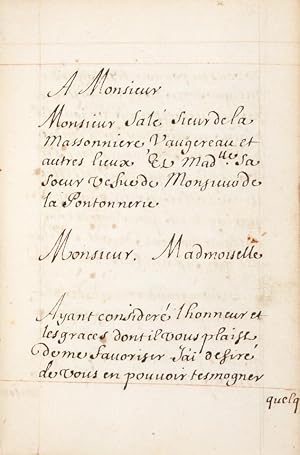 A Monsieur
Monsieur Salé Sieur de la
Massonniere Vaugereau et
autres lieux Et Mad.lle sa
soeur vefue de Monsieur de
la Pontonnerie
Monsieur. Madmoiselle
Ayant consideré lhonneur et
les graces dont il vous plaist
de me favoriser Jai desiré
de vous en pouvoir tesmogner
quelq